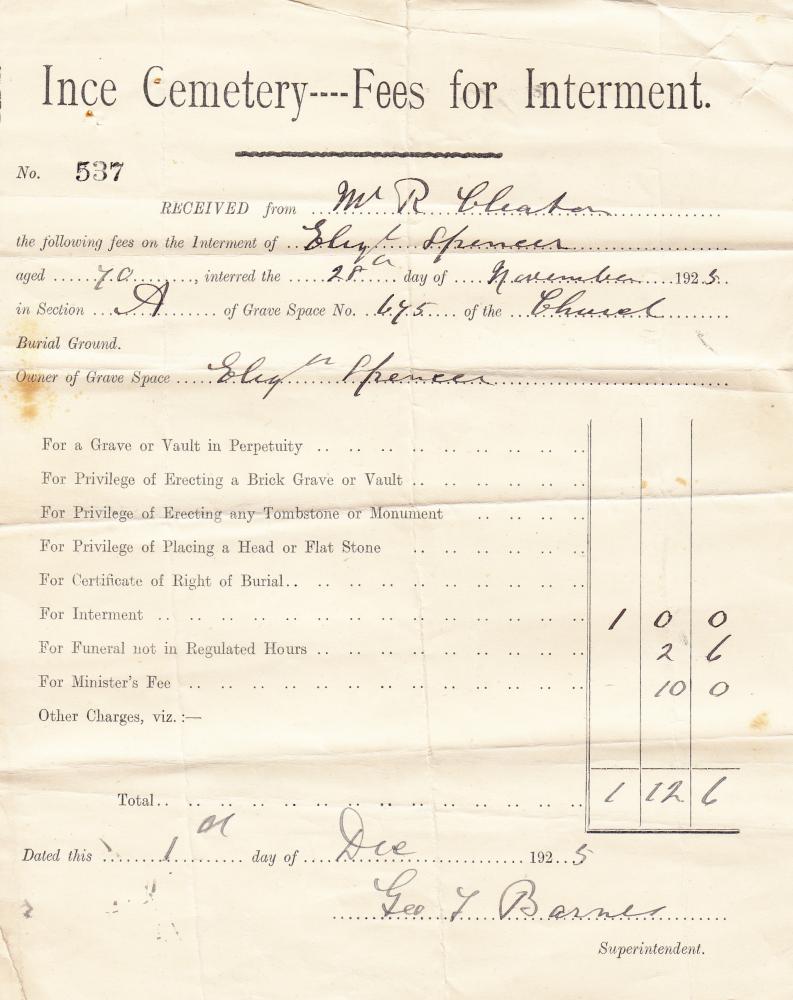 Ince Cemetery----Fees for Interment.
No. 537
RECEIVED from Mr R Cleator
the following fees on the Interment of Elizth Spencer
aged 70, interred the 28th day of November 1925.
in Section A of Grave Space No. 645 of the Church
Burial Ground.
Owner of Grave Space Elizth Spencer
For a Grave or Vault in Perpetuity
For Privilege of Erecting a Brick Grave or Vault
For Privilege of Erecting any Tombstone or Monument
For Privilege of Placing a Head or Flat Stone
For Certificate of Right of Burial
For Interment 1 0 0
For Funeral not in Regulated Hours 2 6
For Minister's Fee 10 0
Other Charges, viz.:—
Total 1 12 6
Dated this 1st day of Dec 1925
Geo T Barnes
Superintendent.